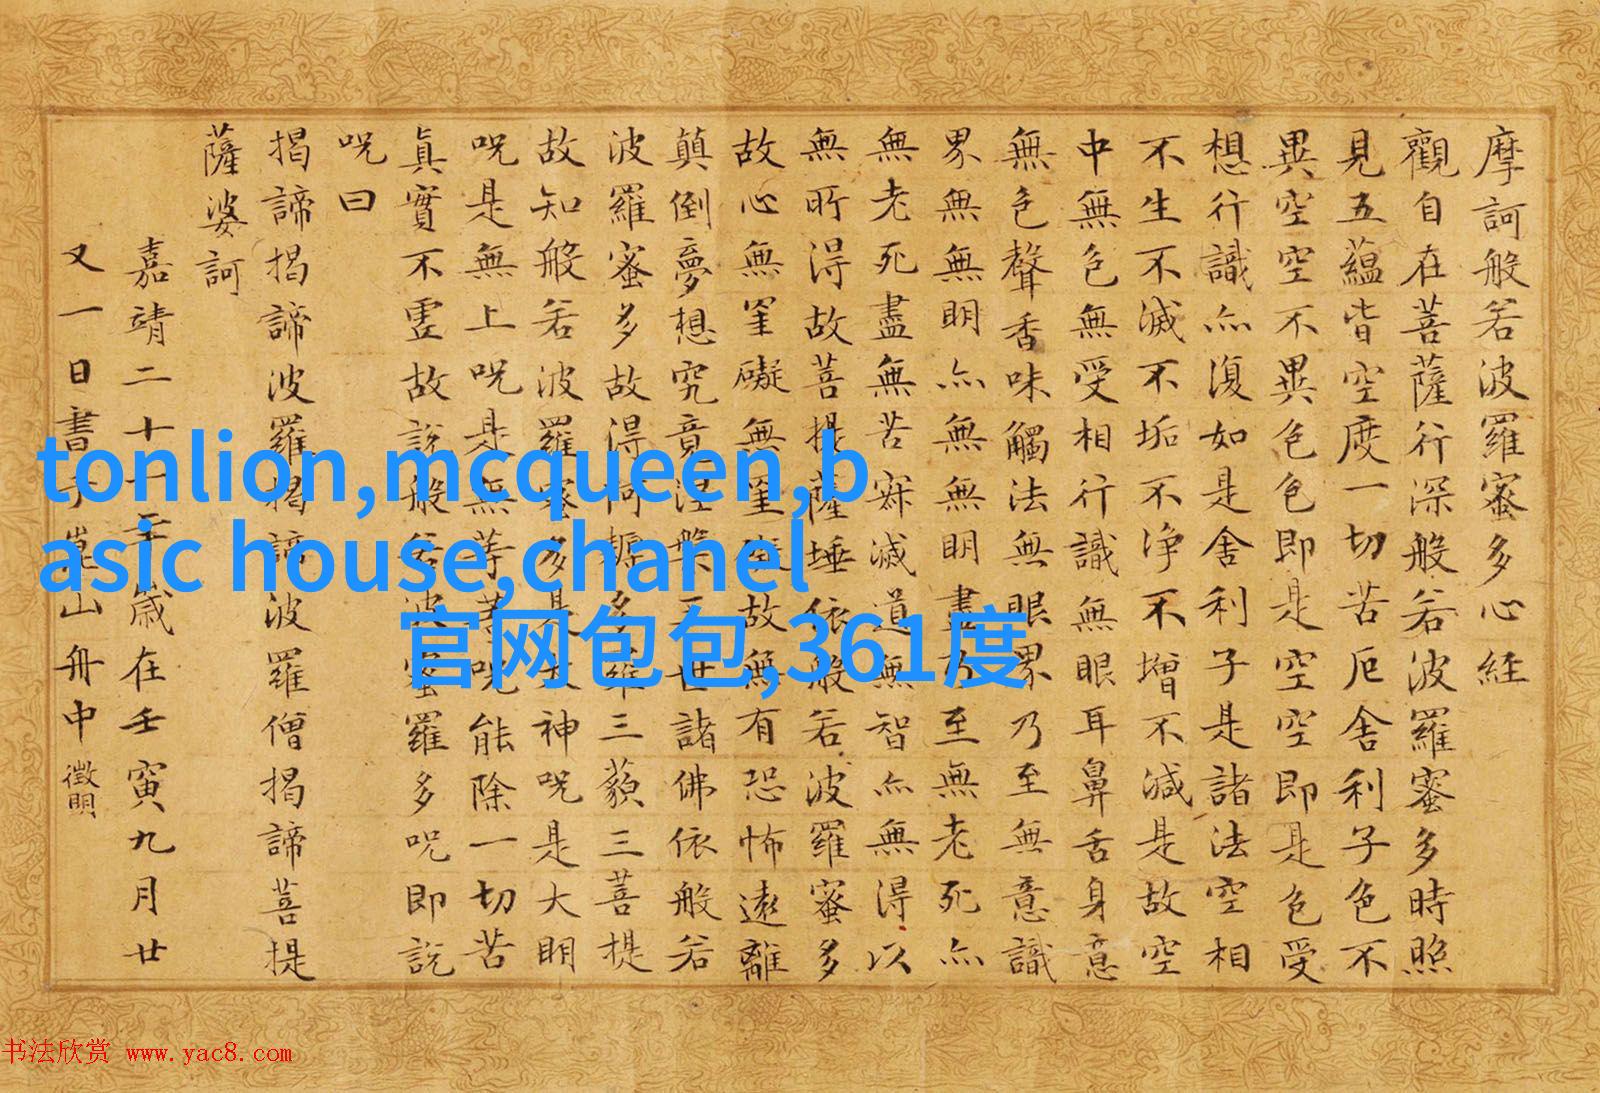 摩訶般若波羅蜜多心経
觀自在菩薩行深般若波羅蜜多時照
見五蘊皆空度一切苦厄舍利子色不
異空空不異色色即是空空即是色受
想行識亦復如是舍利子是諸法空相
不生不滅不垢不淨不增不減是故空
中無色無受相行識無眼耳鼻舌身意
無色聲香味觸法無眼界乃至無意識
界無無明亦無無明盡乃至無老死亦
無老死盡無苦寂滅道無智亦無得以
無所得故菩提薩埵依般若波羅蜜多
故心無罣礙無罣礙故無有恐怖遠離
顛倒夢想究竟涅槃三世諸佛依般若
波羅蜜多故得阿耨多羅三藐三菩提
故知般若波羅蜜多是大神呪是大明
呪是無上呪是無等等呪能除一切苦
真實不虛故說般若波蜜羅多呪即說
呪曰
揭諦揭諦波羅揭諦波羅僧揭諦菩提
薩婆訶
嘉靖二十一年歲在壬寅九月廿
又一日書于崑山舟中 徵明
tonlion,mcqueen,b
asic house,chanel
官网包包,361度
书法欣赏 www.yac8.com